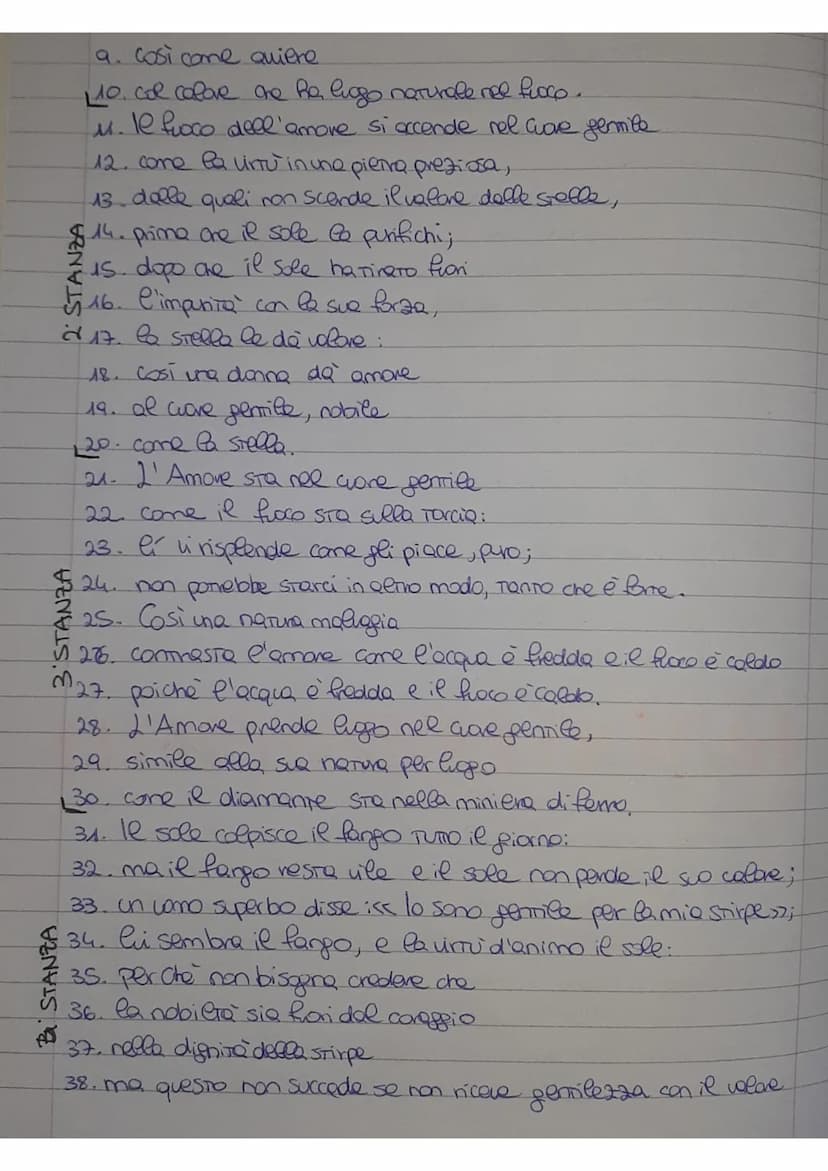 9. così come quiere
10. col calore che ha luogo naturale nel fuoco.
11. Il fuoco dell'amore si accende nel cuore gentile
12. come la virtù in una pietra preziosa,
13. dalle quali non scende il valore delle stelle,
2ª STANZA
14. prima che il sole la purifichi;
15. dopo che il sole ha tirato fuori
16. l'impurità con la sua forza,
17. la stella le dà valore:
18. così una donna dà amore
19. al cuore gentile, nobile
20. come la stella.
21. L'Amore sta nel cuore gentile
22. come il fuoco sta sulla torcia:
23. lì vi risplende come gli piace, puro;
3ª STANZA
24. non potrebbe starci in altro modo, tanto che è forte.
25. Così una natura malvagia
26. contrasta l'amore come l'acqua è fredda e il fuoco è caldo
27. poiché l'acqua è fredda e il fuoco è caldo.
28. L'Amore prende luogo nel cuore gentile,
29. simile alla sua natura per luogo
30. come il diamante sta nella miniera di ferro.
31. Il sole colpisce il fango tutto il giorno:
32. ma il fango resta vile e il sole non perde il suo calore;
33. un uomo superbo disse: << Io sono gentile per la mia stirpe >>;
STANZA
34. lui sembra il fango, e la virtù d'animo il sole:
35. perché non bisogna credere che
36. la nobiltà sia fuori dal coraggio
37. nella dignità della stirpe
38. ma questo non succede se non riceve gentilezza con il valore